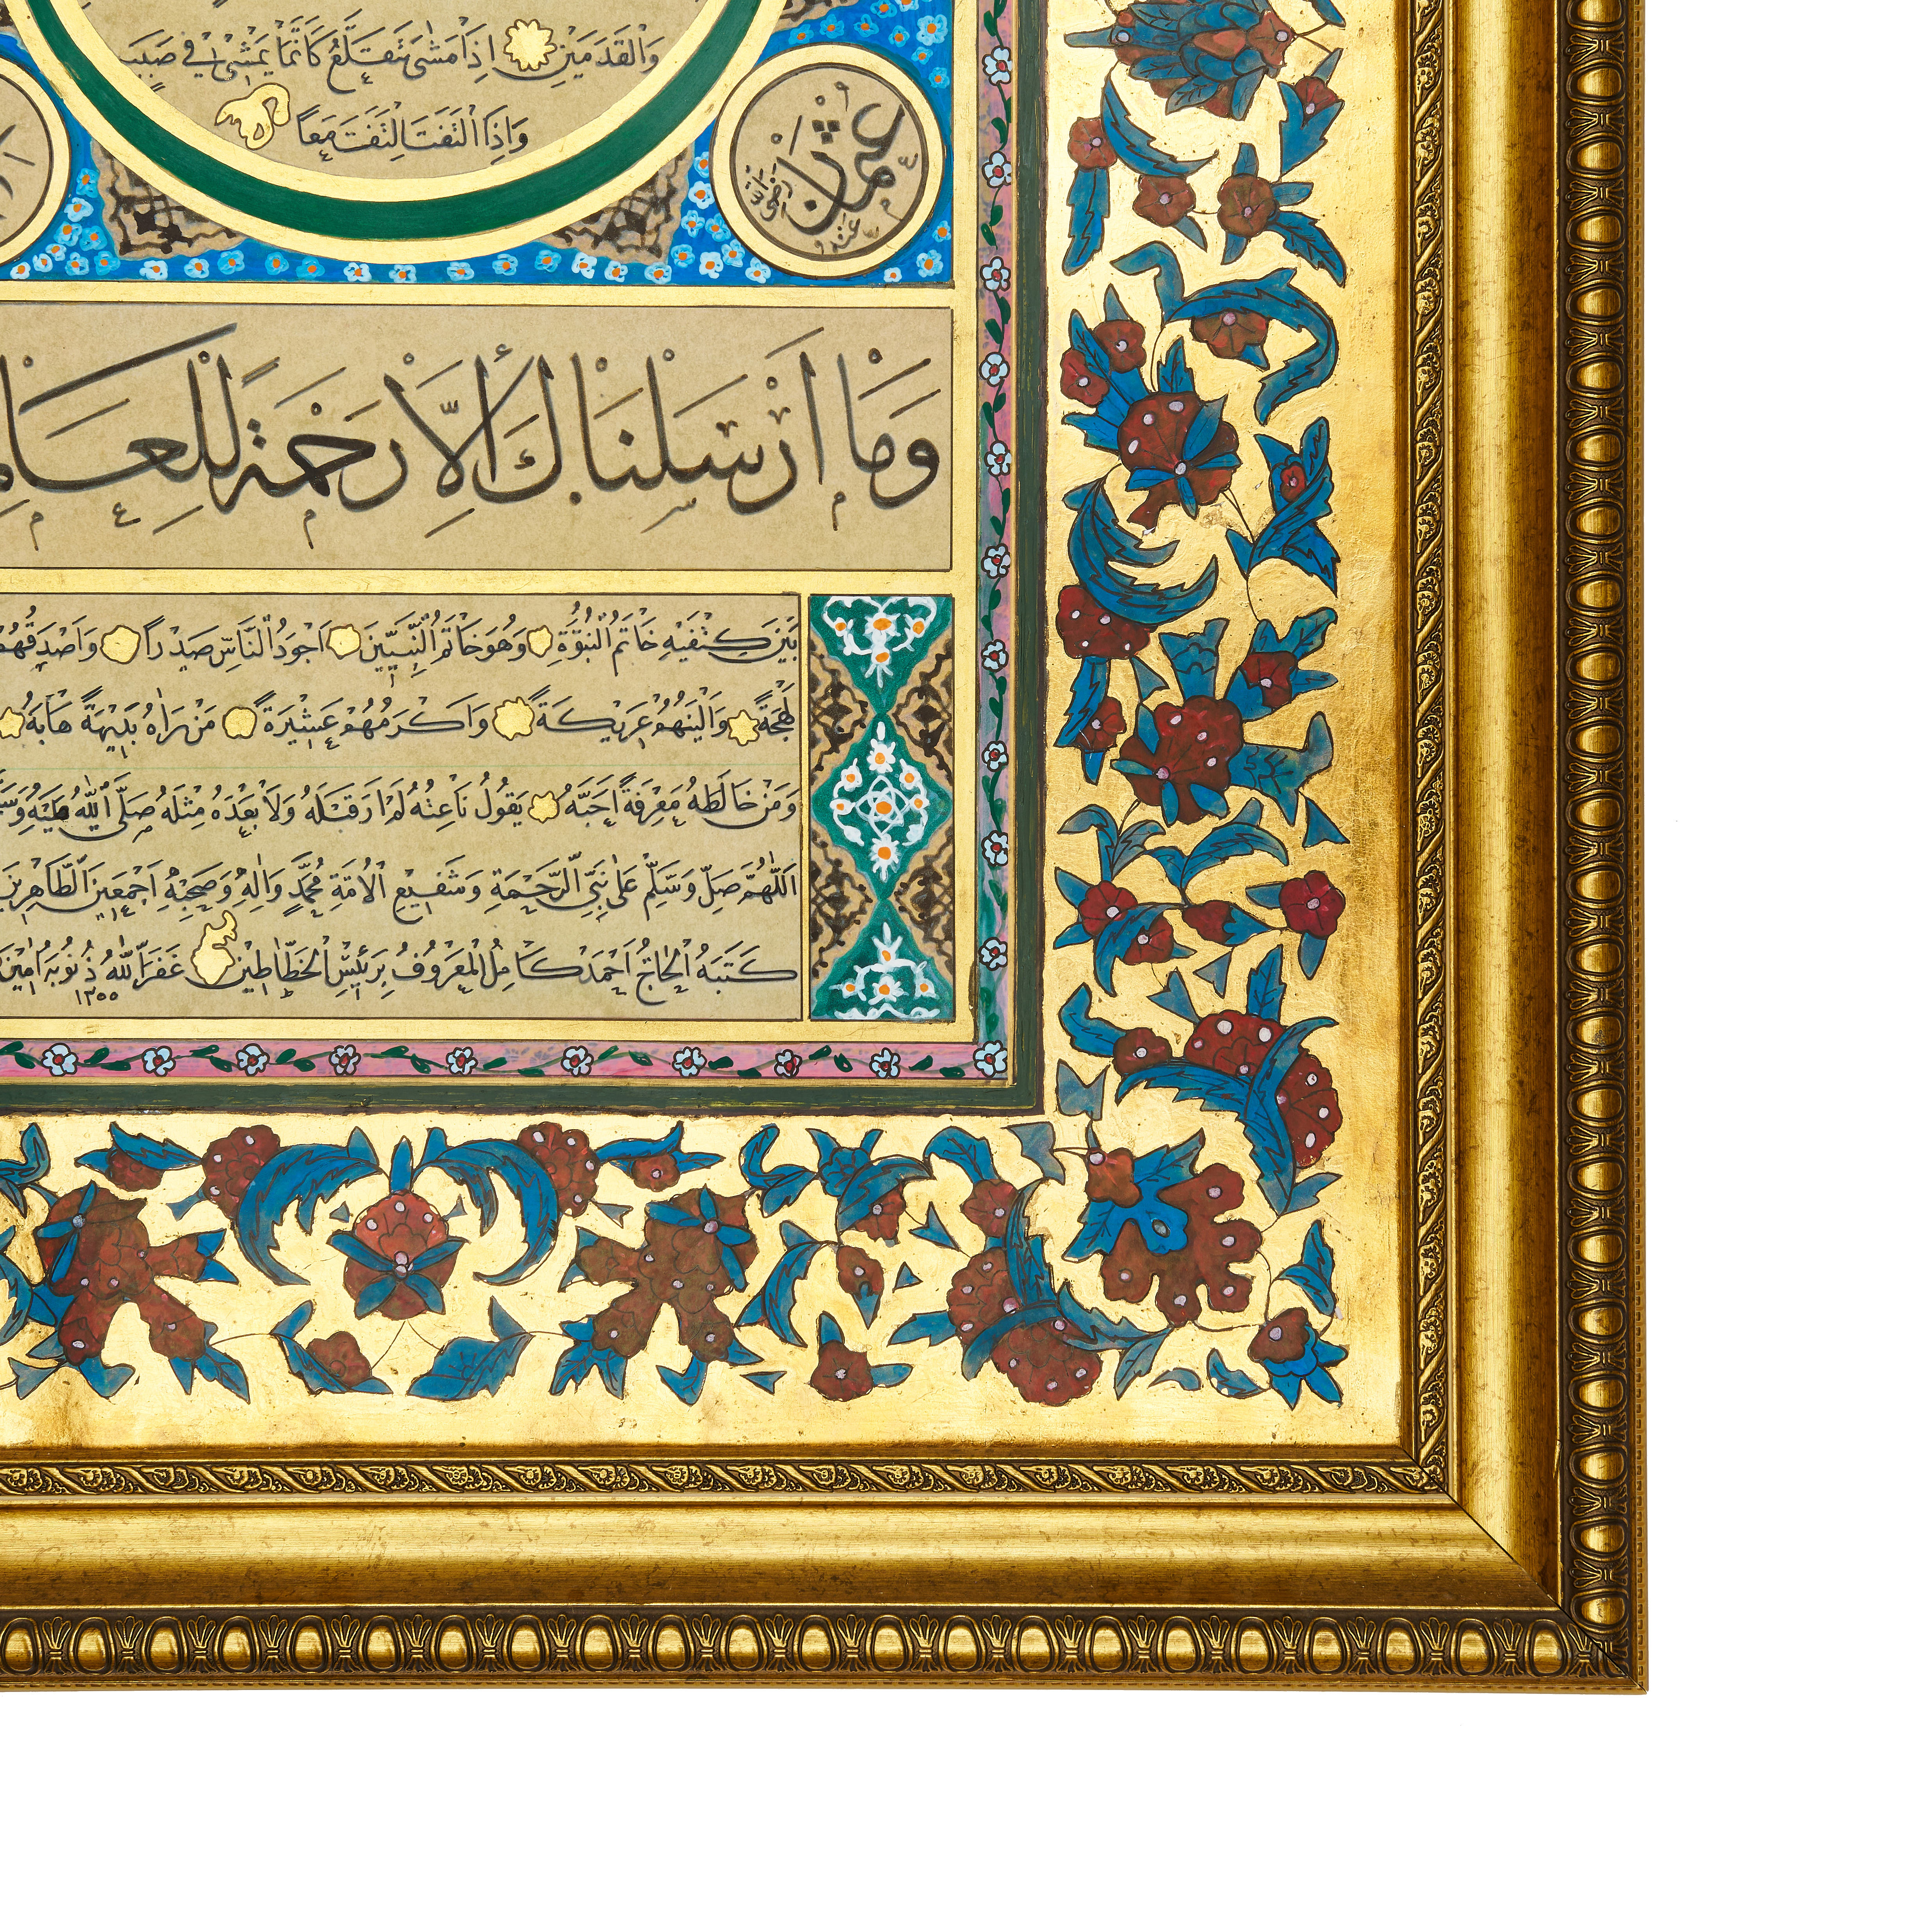 وَالْقَدَمَيْنِ اِذَا مَشٰى تَقَلَّعَ كَاَنَّمَا يَمْشٖى فٖى صَبَبٍ
وَاِذَا الْتَفَتَ الْتَفَتَ مَعًا
عثمان رضى الله عنه
وَمَا اَرْسَلْنَاكَ اِلَّا رَحْمَةً لِلْعَالَمِ
بَيْنَ كِتْفَيْهِ خَاتَمُ النُّبُوَّةِ وَهُوَ خَاتَمُ النَّبِيّٖينَ اَجْوَدُ النَّاسِ صَدْرًا وَاَصْدَقُهُمْ
لَهْجَةً وَاَلْيَنُهُمْ عَرٖيكَةً وَاَكْرَمُهُمْ عَشٖيرَةً مَنْ رَاٰهُ بَدٖيهَةً هَابَهُ
وَمَنْ خَالَطَهُ مَعْرِفَةً اَحَبَّهُ يَقُولُ نَاعِتُهُ لَمْ اَرَ قَبْلَهُ وَلَا بَعْدَهُ مِثْلَهُ صَلَّى اللّٰهُ عَلَيْهِ وَسَ
اَللّٰهُمَّ صَلِّ وَسَلِّمْ عَلٰى نَبِىِّ الرَّحْمَةِ وَشَفٖيعِ الْاُمَّةِ مُحَمَّدٍ وَاٰلِهِ وَصَحْبِهِ اَجْمَعٖينَ الطَّاهِرٖينَ
كَتَبَهُ الْحَاجُّ اَحْمَدْ كَامِلُ الْمَعْرُوفُ بِرَئٖيسِ الْخَطَّاطٖينَ غَفَرَ اللّٰهُ ذُنُوبَهُ اٰمٖينَ
١٣٥٥